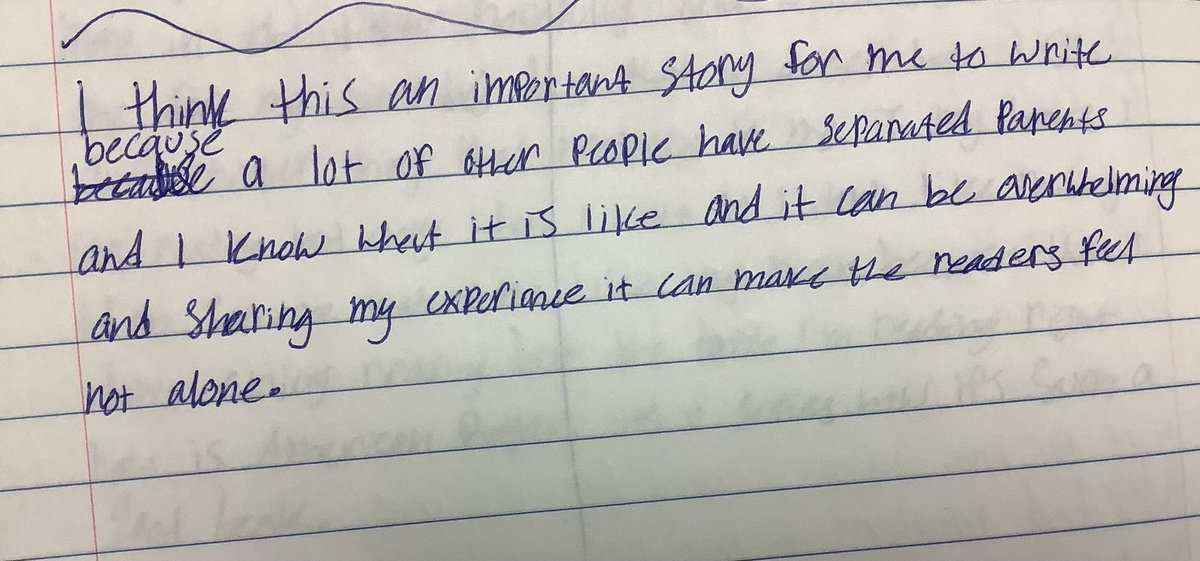 I think this an important story for me to write
because
a lot of other people have separated parents
and I know what it is like and it can be overwhelming
and sharing my experiance it can make the readers feel
not alone.